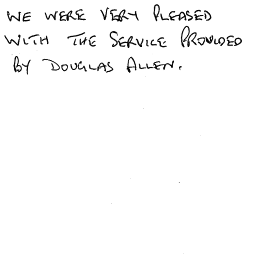 WE WERE VERY PLEASED
WITH THE SERVICE PROVIDED
BY DOUGLAS ALLEN.